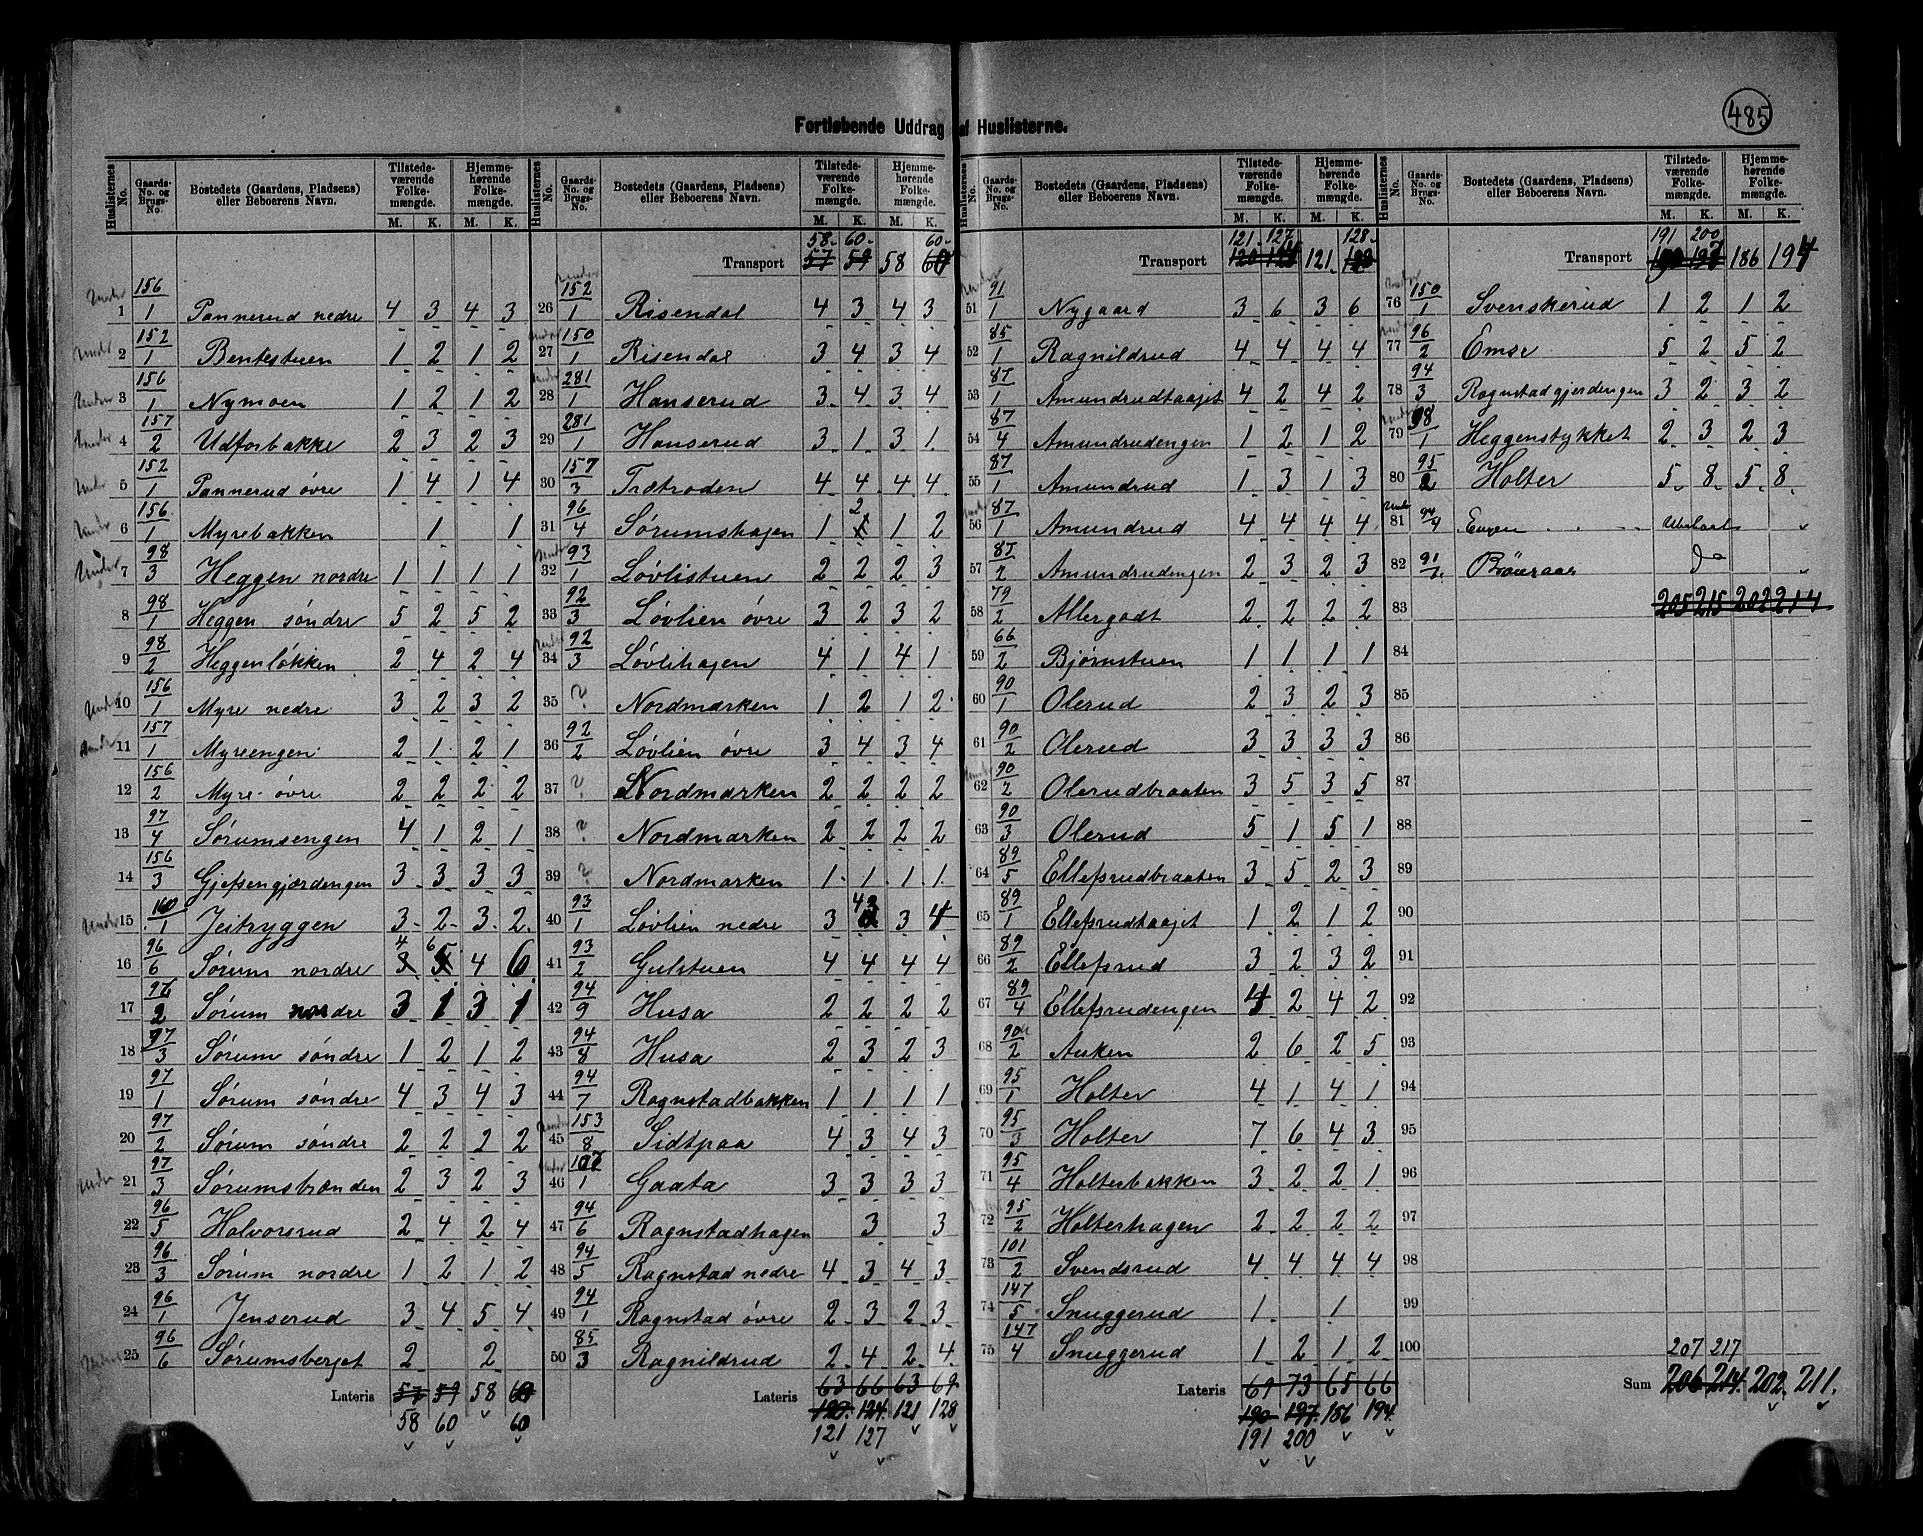 485
Fortløbende Uddrag af Huslisterne.
Huslisternes No. | Gaards-No. og Brugs-No. | Bostedets (Gaardens, Pladsens) eller Beboerens Navn. | Tilstedeværende Folkemængde. M. K. | Hjemmehørende Folkemængde. M. K.
Under 1 156/1 Pannerud nedre 4 3 4 3
Under 2 152/1 Bentestuen 1 2 1 2
Under 3 156/1 Nymoen 1 2 1 2
Under 4 157/2 Udforbakke 2 3 2 3
Under 5 152/1 Pannerud övre 1 4 1 4
Under 6 156/1 Myrebakken 1 1
Under 7 98/3 Heggen nordre 1 1 1 1
8 98/1 Heggen söndre 5 2 5 2
9 98/2 Heggenløkken 2 4 2 4
Under 10 156/1 Myre nedre 3 2 3 2
Under 11 157/1 Myreengen 2 1 2 1
12 156/2 Myre övre 2 2 2 2
13 97/4 Sørumsengen 4 1 2 1
14 156/3 Gjefsengjærdengen 3 3 3 3
Under 15 160/1 Jeitryggen 3 2 3 2
16 96/6 Sørum nordre 4 6 4 6
17 96/2 Sørum nordre 3 1 3 1
18 97/3 Sørum søndre 1 2 1 2
19 97/1 Sørum søndre 4 3 4 3
20 97/2 Sørum søndre 2 2 2 2
Under 21 97/3 Sørumsbrænden 2 3 2 3
22 96/5 Halvorsrud 2 4 2 4
23 96/3 Sørum nordre 1 2 1 2
24 96/1 Jenserud 3 4 5 4
Under 25 96/6 Sørumsberget 2 2
Lateris 57 59 58 60
58 60 60
58 60 60
Transport 57 59 58 60
Under 26 152/1 Risendal 4 3 4 3
Under 27 150/1 Risendal 3 4 3 4
Under 28 281/1 Hanserud 3 4 3 4
29 281/1 Hanserud 3 1 3 1
30 157/3 Trætroden 4 4 4 4
31 96/4 Sørumshagen 1 2 1 2
Under 32 93/1 Løvlistuen 2 2 2 3
33 92/3 Løvlien øvre 3 2 3 2
Under 34 92/3 Løvlihagen 4 1 4 1
35 ? Nordmarken 1 2 1 2
36 92/2 Løvlien øvre 3 4 3 4
37 ? Nordmarken 2 2 2 2
38 ? Nordmarken 2 2 2 2
39 ? Nordmarken 1 1 1 1
40 93/1 Løvlien nedre 3 3 4
41 93/2 Gulstuen 4 4 4 4
42 94/9 Husa 2 2 2 2
43 94/8 Husa 2 3 2 3
44 94/7 Ragnstadbakken 1 1 1 1
Under 45 153/8 Sidtpaa 4 3 4 3
Under 46 107/1 Gaata 3 3 3 3
47 94/6 Ragnstadhagen 3 3
48 94/5 Ragnstad nedre 4 3 4 3
49 94/1 Ragnstad øvre 2 3 2 3
50 85/3 Ragnildrud 2 4 2 4
Lateris 63 66 63 69
120 124 121 128
121 127
121 127 128
Transport 120 124 121
Under 51 91/1 Nygaard 3 6 3 6
52 85/1 Ragnildrud 4 4 4 4
53 87/1 Amundrudtaajet 4 2 4 2
54 87/4 Amundrudengen 1 2 1 2
55 87/1 Amundrud 1 3 1 3
Under 56 87/1 Amundrud 4 4 4 4
57 87/2 Amundrudengen 2 3 2 3
58 79/2 Allergodt 2 2 2 2
59 66/2 Bjørnstuen 1 1 1 1
60 90/1 Olerud 2 3 2 3
61 90/2 Olerud 3 3 3 3
Under 62 90/2 Olerudbraaten 3 5 3 5
63 90/3 Olerud 5 1 5 1
64 89/5 Ellefsrudbraaten 3 5 2 3
65 89/1 Ellefsrudtaajet 1 2 1 2
66 89/2 Ellefsrud 3 2 3 2
67 89/4 Ellefsrudengen 4 2 4 2
68 90/2 Auken 2 6 2 5
69 95/1 Holter 4 1 4 1
70 95/3 Holter 7 6 4 3
71 95/4 Holterbakken 3 2 2 1
72 95/2 Holterhagen 2 2 2 2
73 101/2 Svendsrud 4 4 4 4
74 147/5 Snuggerud 1 1
75 147/4 Snuggerud 1 2 1 2
Lateris 69 73 65 66
190 197 186 194
191 200
191 200
Transport 190 197 186 194
Under 76 150/1 Svenskerud 1 2 1 2
Under 77 96/2 Emse 5 2 5 2
78 94/3 Ragnstadgjerdengen 3 2 3 2
Under 79 98/1 Heggenstykket 2 3 2 3
80 95/2 Holter 5 8 5 8
Under 81 94/4 Engen Ubeboet
82 91/1 Do
83 205 215 202 214
84
85
86
87
88
89
90
91
92
93
94
95
96
97
98
99
100 207 217
Sum 206 214 202 211